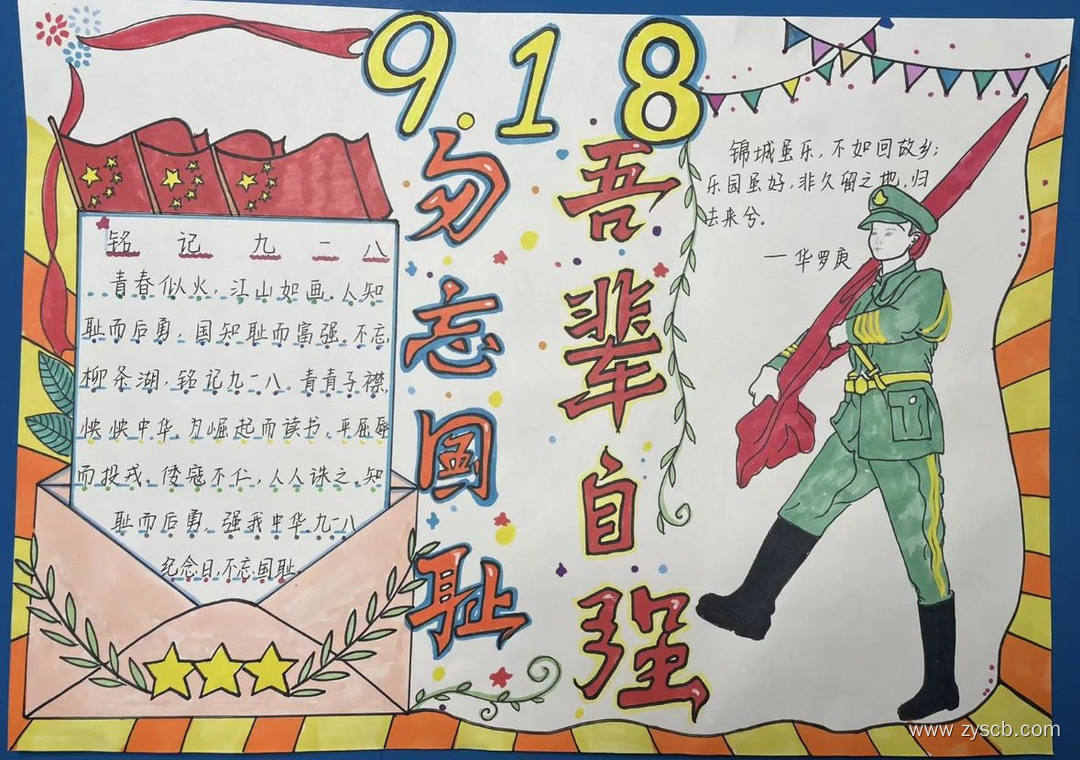 9.18
勿忘国耻
吾辈自强
铭记九一八
青春似火,江山如画。人知
耻而后勇,国知耻而富强。不忘
柳条湖,铭记九一八。青青子襟,
怏怏中华。为崛起而读书,平屈辱
而投戎。倭寇不仁,人人诛之。知
耻而后勇。强我中华。九一八
纪念日,不忘国耻。
锦城虽乐,不如回故乡;
乐园虽好,非久留之地。归
去来兮。
—华罗庚
www.zyscb.com